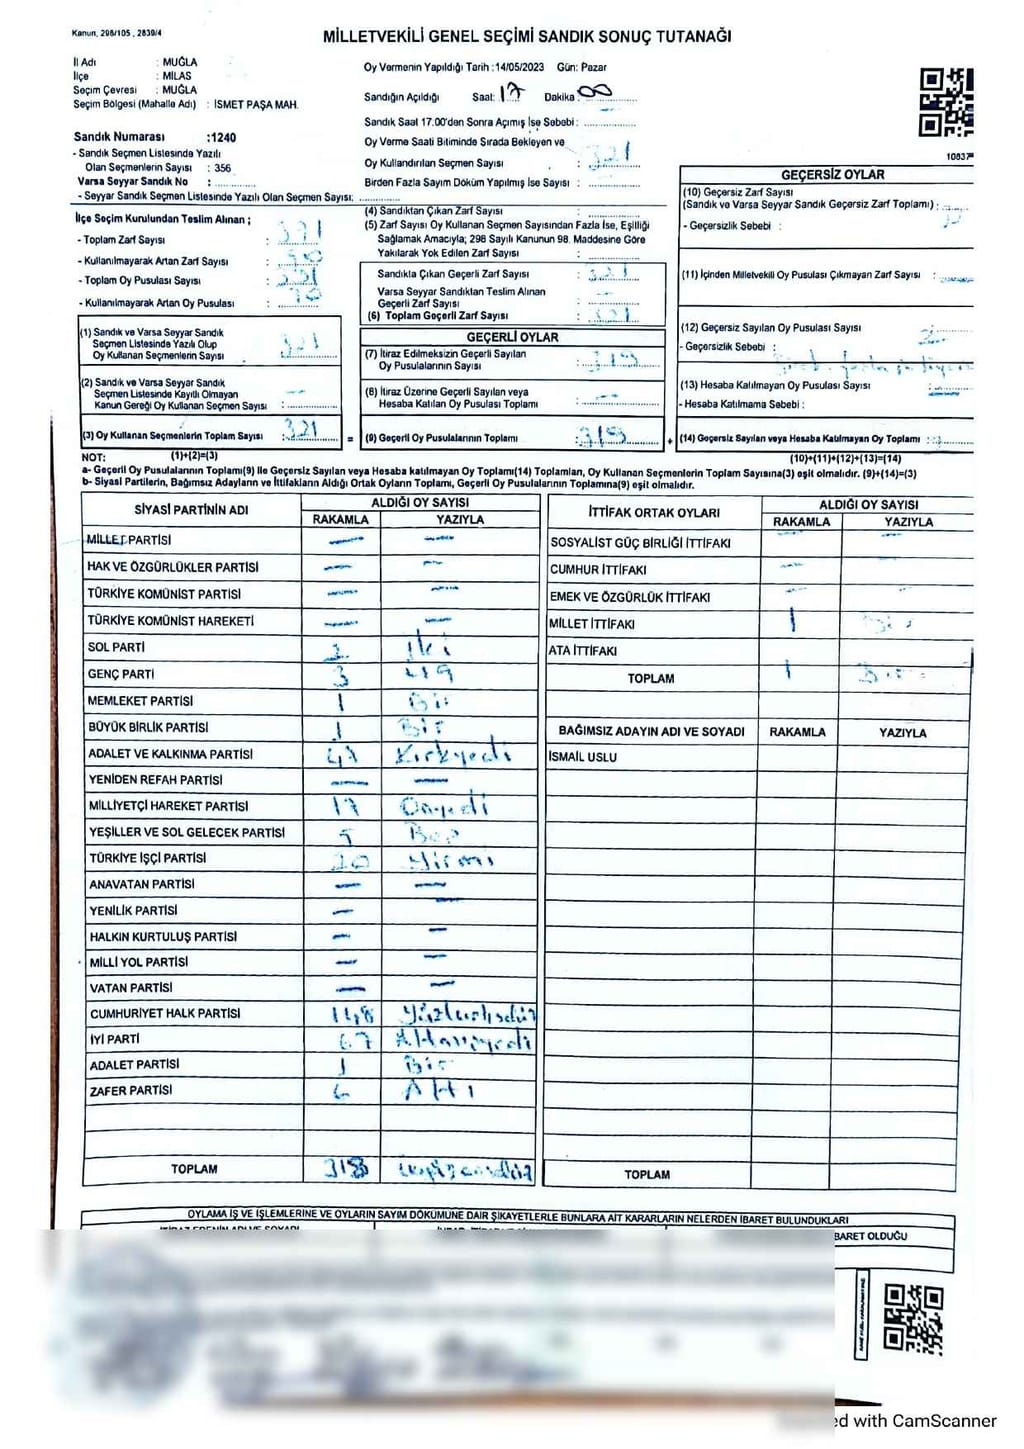 Kanun, 298/105, 2839/4
MİLLETVEKİLİ GENEL SEÇİMİ SANDIK SONUÇ TUTANAĞI
İl Adı : MUĞLA
İlçe : MİLAS
Seçim Çevresi : MUĞLA
Seçim Bölgesi (Mahalle Adı) : İSMET PAŞA MAH.
Sandık Numarası :1240
- Sandık Seçmen Listesinde Yazılı
Olan Seçmenlerin Sayısı : 356
Varsa Seyyar Sandık No :
- Seyyar Sandık Seçmen Listesinde Yazılı Olan Seçmen Sayısı:
Oy Vermenin Yapıldığı Tarih :14/05/2023 Gün: Pazar
Sandığın Açıldığı Saat: 17 Dakika 00
Sandık Saat 17.00'den Sonra Açımış İse Sebebi :
Oy Verme Saati Bitiminde Sırada Bekleyen ve
Oy Kullandırılan Seçmen Sayısı : 321
Birden Fazla Sayım Döküm Yapılmış İse Sayısı :
10837
İlçe Seçim Kurulundan Teslim Alınan ;
- Toplam Zarf Sayısı :
- Kullanılmayarak Artan Zarf Sayısı :
- Toplam Oy Pusulası Sayısı :
- Kullanılmayarak Artan Oy Pusulası :
(1) Sandık ve Varsa Seyyar Sandık
Seçmen Listesinde Yazılı Olup
Oy Kullanan Seçmenlerin Sayısı : 321
(2) Sandık ve Varsa Seyyar Sandık
Seçmen Listesinde Kayıtlı Olmayan
Kanun Gereği Oy Kullanan Seçmen Sayısı : —
(3) Oy Kullanan Seçmenlerin Toplam Sayısı : 321
(4) Sandıktan Çıkan Zarf Sayısı :
(5) Zarf Sayısı Oy Kullanan Seçmen Sayısından Fazla İse, Eşitliği
Sağlamak Amacıyla; 298 Sayılı Kanunun 98. Maddesine Göre
Yakılarak Yok Edilen Zarf Sayısı :
Sandıkla Çıkan Geçerli Zarf Sayısı : 321
Varsa Seyyar Sandıktan Teslim Alınan
Geçerli Zarf Sayısı : —
(6) Toplam Geçerli Zarf Sayısı : 321
GEÇERLİ OYLAR
(7) İtiraz Edilmeksizin Geçerli Sayılan
Oy Pusulalarının Sayısı : 319
(8) İtiraz Üzerine Geçerli Sayılan veya
Hesaba Katılan Oy Pusulası Toplamı : —
= (9) Geçerli Oy Pusulalarının Toplamı : 319
GEÇERSİZ OYLAR
(10) Geçersiz Zarf Sayısı
(Sandık ve Varsa Seyyar Sandık Geçersiz Zarf Toplamı) :
- Geçersizlik Sebebi :
(11) İçinden Milletvekili Oy Pusulası Çıkmayan Zarf Sayısı :
(12) Geçersiz Sayılan Oy Pusulası Sayısı :
- Geçersizlik Sebebi :
(13) Hesaba Katılmayan Oy Pusulası Sayısı :
- Hesaba Katılmama Sebebi :
+ (14) Geçersiz Sayılan veya Hesaba Katılmayan Oy Toplamı :
NOT: (1)+(2)=(3) (10)+(11)+(12)+(13)=(14)
a- Geçerli Oy Pusulalarının Toplamı(9) ile Geçersiz Sayılan veya Hesaba katılmayan Oy Toplamı(14) Toplamları, Oy Kullanan Seçmenlerin Toplam Sayısına(3) eşit olmalıdır. (9)+(14)=(3)
b- Siyasi Partilerin, Bağımsız Adayların ve İttifakların Aldığı Ortak Oyların Toplamı, Geçerli Oy Pusulalarının Toplamına(9) eşit olmalıdır.
SİYASİ PARTİNİN ADI ALDIĞI OY SAYISI
RAKAMLA YAZIYLA
MİLLET PARTİSİ — —
HAK VE ÖZGÜRLÜKLER PARTİSİ — —
TÜRKİYE KOMÜNİST PARTİSİ — —
TÜRKİYE KOMÜNİST HAREKETİ — —
SOL PARTİ 2 İki
GENÇ PARTİ 3
MEMLEKET PARTİSİ 1 Bir
BÜYÜK BİRLİK PARTİSİ 1 Bir
ADALET VE KALKINMA PARTİSİ 47 Kırkyedi
YENİDEN REFAH PARTİSİ — —
MİLLİYETÇİ HAREKET PARTİSİ 17 Onyedi
YEŞİLLER VE SOL GELECEK PARTİSİ 5 Beş
TÜRKİYE İŞÇİ PARTİSİ 20 Yirmi
ANAVATAN PARTİSİ — —
YENİLİK PARTİSİ — —
HALKIN KURTULUŞ PARTİSİ — —
MİLLİ YOL PARTİSİ — —
VATAN PARTİSİ — —
CUMHURİYET HALK PARTİSİ 148 Yüzkırksekiz
İYİ PARTİ 67 Altmışyedi
ADALET PARTİSİ 1 Bir
ZAFER PARTİSİ 6 Altı
TOPLAM 318
İTTİFAK ORTAK OYLARI ALDIĞI OY SAYISI
RAKAMLA YAZIYLA
SOSYALİST GÜÇ BİRLİĞİ İTTİFAKI — —
CUMHUR İTTİFAKI —
EMEK VE ÖZGÜRLÜK İTTİFAKI —
MİLLET İTTİFAKI 1 Bir
ATA İTTİFAKI
TOPLAM 1 Bir
BAĞIMSIZ ADAYIN ADI VE SOYADI RAKAMLA YAZIYLA
İSMAİL USLU
TOPLAM
OYLAMA İŞ VE İŞLEMLERİNE VE OYLARIN SAYIM DÖKÜMÜNE DAİR ŞİKAYETLERLE BUNLARA AİT KARARLARIN NELERDEN İBARET BULUNDUKLARI
BARET OLDUĞU
ed with CamScanner